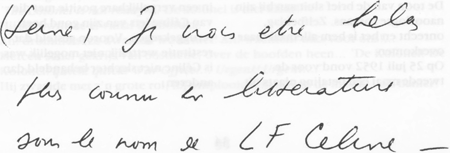 (Seine), Je crois etre helas
plus connu en litterature
sous le nom de LF Celine —